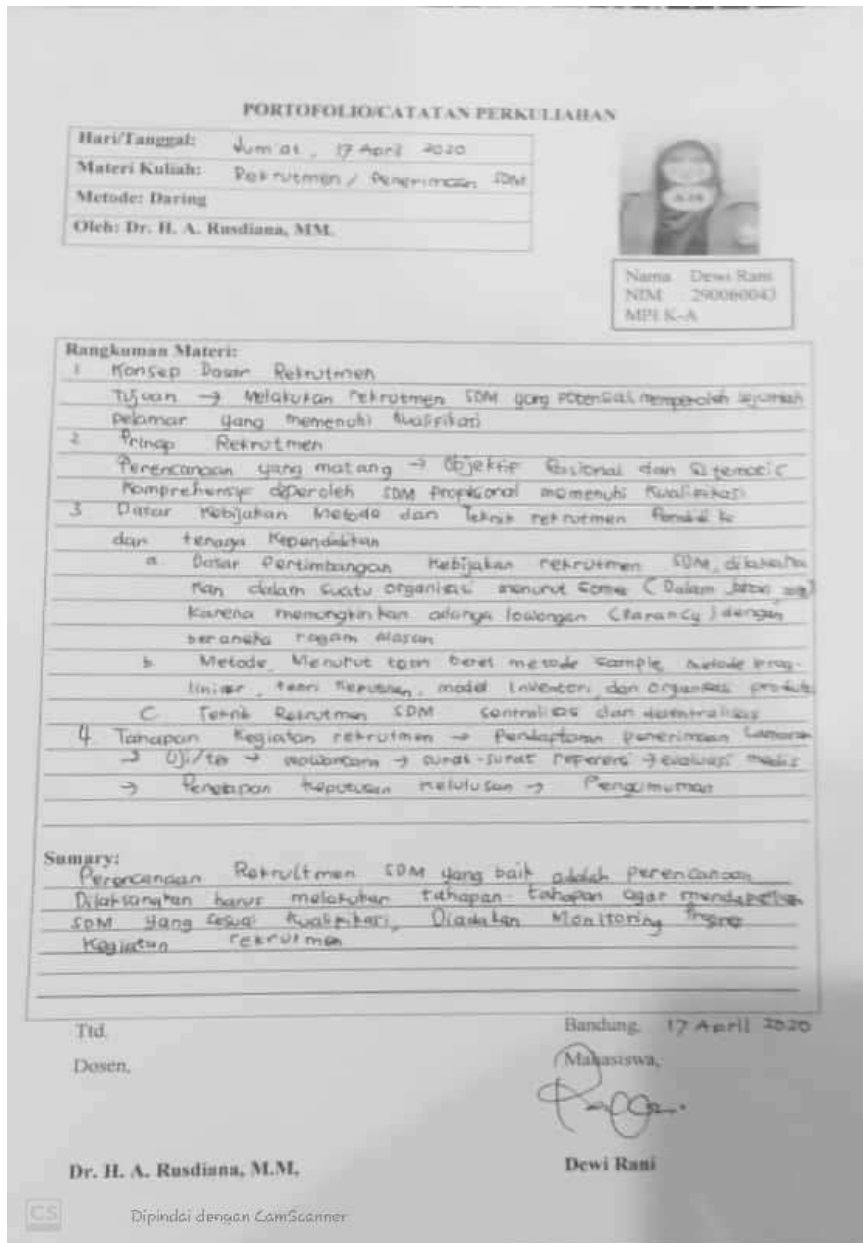 PORTOFOLIO/CATATAN PERKULIAHAN
Hari/Tanggal: Jum'at, 17 April 2020
Materi Kuliah: Rekrutmen / Penerimaan SDM
Metode: Daring
Oleh: Dr. H. A. Rusdiana, MM.
Nama Dewi Rani
NIM 290060043
MPI K-A
Rangkuman Materi:
1 Konsep Dasar Rekrutmen
Tujuan → Melakukan rekrutmen SDM yang potensial memperoleh sejumlah
pelamar yang memenuhi kualifikasi
2 Prinsip Rekrutmen
Perencanaan yang matang → Objektif Rasional dan
Komprehensif diperoleh SDM memenuhi Kualifikasi
3 Dasar Kebijakan Metode dan Teknik rekrutmen
dan tenaga Kependidikan
a. Dasar Pertimbangan Kebijakan rekrutmen SDM, dilaksana
kan dalam suatu organisasi menurut (Dalam
karena memungkinkan adanya lowongan dengan
beraneka ragam alasan
b. Metode, Menurut metode sample, metode
linier, teori Keputusan, model Inventori, dan organisasi
C Teknik Rekrutmen SDM dan
4 Tahapan Kegiatan rekrutmen → penerimaan Lamaran
→ Uji/tes → wawancara → surat-surat referensi → evaluasi medis
→ Penetapan Keputusan Kelulusan → Pengumuman
Sumary:
Perencanaan Rekruitmen SDM yang baik adalah perencanaan
Dilaksanakan harus melakukan tahapan-tahapan agar mendapatkan
SDM yang sesuai kualifikasi, Diadakan Monitoring
Kegiatan rekrutmen
Ttd.
Bandung, 17 April 2020
Dosen,
Mahasiswa,
Dr. H. A. Rusdiana, M.M,
Dewi Rani
CS Dipindai dengan CamScanner